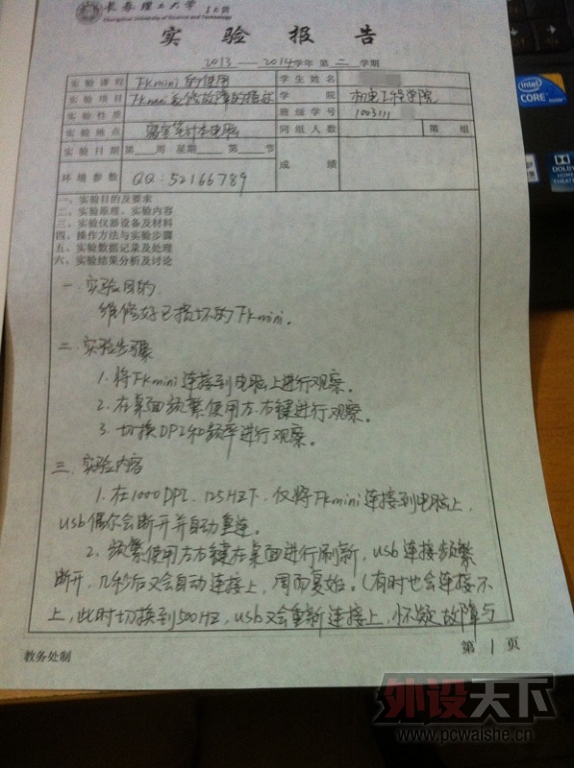 长春理工大学
Changchun University of Science and Technology
实 验 报 告
2013——2014学年 第 二 学期
实验课程 Fkmini的使用 学生姓名
实验项目 Fkmini 故障的描述 学 院 机电工程学院
实验性质 班级学号 1003111
实验地点 寝室笔记本电脑 同组人数 第 组
实验日期 第 周 星期 第 节 成 绩
环境参数 QQ:52166789
一、实验目的及要求
二、实验原理、实验内容
三、实验仪器设备及材料
四、操作方法与实验步骤
五、实验数据记录及处理
六、实验结果分析及讨论
一. 实验目的
维修好已损坏的Fkmini。
二. 实验步骤
1. 将Fkmini连接到电脑上进行观察。
2. 在桌面频繁使用左右键进行观察。
3. 切换DPI和频率进行观察。
三. 实验内容
1. 在1000DPI、125HZ下,仅将Fkmini连接到电脑上,
usb偶尔会断开并自动重连。
2. 频繁使用左右键在桌面进行刷新,usb连接频繁
断开,几秒后又会自动连接上,周而复始。(有时也会连接不
上,此时切换到500HZ,usb又会重新连接上,怀疑故障与
教务处制
第 1 页
intel
CORE
DOLBY
HOME THEATER
外设天下
www.pcwaishe.cn